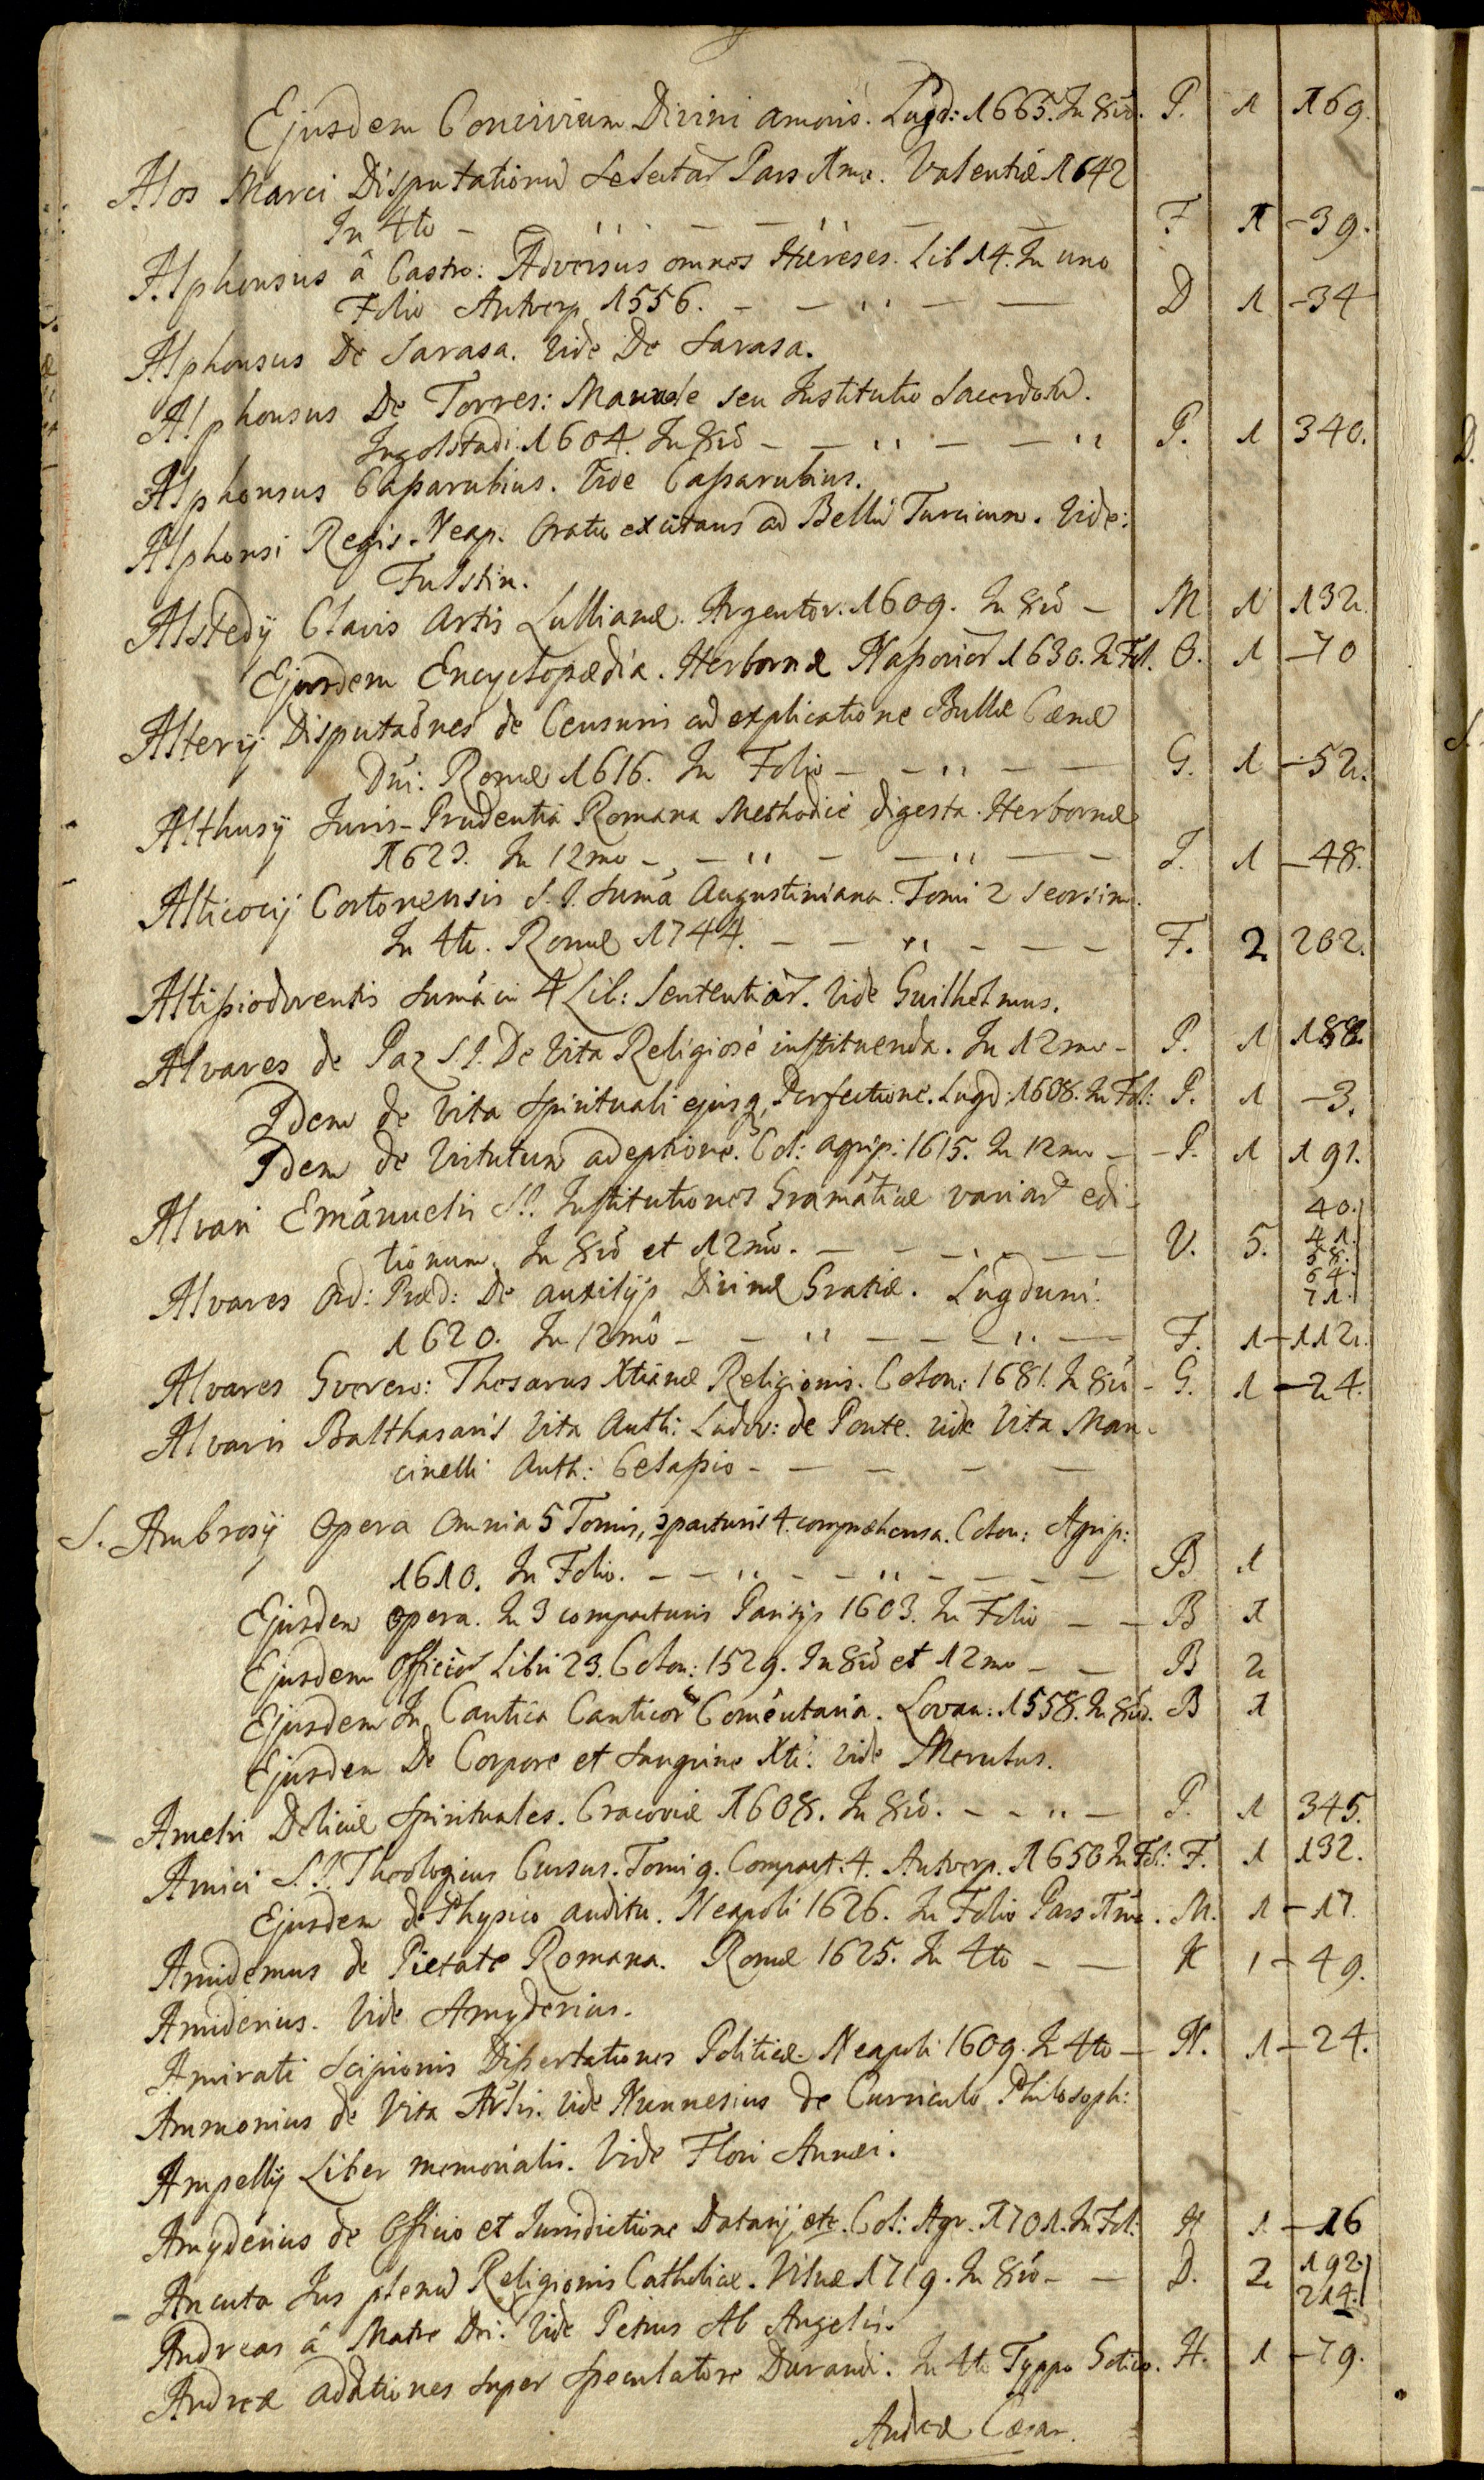 Ejusdem Convivium Divini amoris. Lugd: 1665. In 8vo. P. 1 169.
Alos Marci Disputationū Selectar̄ Pars 1ma. Valentiæ 1642
In 4to - F 1 -39.
Alphonsus â Castro: Adversus omnes Hæreses. Lib 14. In uno
Folio Antverp. 1556. - D 1 -34
Alphonsus De Sarasa. Vide De Sarasa.
Alphonsus De Torres: Manuale seu Institutio Sacerdotū.
Ingolstadi. 1604. In 8vo - P. 1 340.
Alphonsus Caparubius. Vide Caparubius.
Alphonsi Regis. Neap. Oratio excitans ad Bellū Turcicum. Vide:
Fulstin.
Alstedij Clavis Artis Lullianæ. Argentor. 1609. In 8vo - M 1 132.
Ejusdem Encyclopædia. Herbornæ Naßovior̄ 1630. In Fol. O. 1 -70
Alterij Disputaōnes de Censuris cū explicatione Bullæ Cænæ
Dn̄i: Romæ 1616. In Folio - G. 1 -52.
Althusij Juris-Prudentia Romana Methodicè digesta. Herbornæ
1623. In 12mo - I. 1 -48.
Alticocij Cortonensis S.I. Sum̄a Augustiniana. Tomi 2 seorsim.
In 4to. Romæ 1744. - F. 2. 202.
Altißiodorentis Sum̄a in 4 Lib: Sententiar̄. Vide Guilhelmus.
Alvares de Paz S.I. De Vita Religiosè instituenda. In 12mo - P. 1 188.
Idem de Vita Spirituali ejusq, Perfectione. Lugd: 1608. In Fol: P. 1 -3.
Idem de Virtutum adeptione. Col: agrip: 1615. In 12mo - P. 1 191.
Alvari Em̄anuelis S.I. Institutiones Gram̄aticæ variar̄ edi-
tionum. In 8vo et 12mo. - V. 5. 40. 41. 58. 64. 71.
Alvares Ord: Præd: De auxilijs Divinæ Gratiæ. Lugduni.
1620. In 12mô - F. 1 -112.
Alvares Gverero: Thesarus Xtianæ Religionis. Colon: 1681. In 8vo - G. 1 -24.
Alvaris Balthasaris Vita Auth: Ludov: de Ponte. Vide Vita Man-
cinelli Auth: Celapio -
S. Ambrosij Opera Omnia 5 Tomis, compacturis 4. comprehensa. Colon: Agrip:
1610. In Folio. - B 1
Ejusdem Opera. In 3 compacturis Parisijs 1603. In Folio - B 1
Ejusdem Officior̄ Libri 23. Colon: 1529. In 8vo et 12mo - B 2
Ejusdem In Cantica Canticor̄ Com̄entaria. Lovan: 1558. In 8vo. B 1
Ejusdem De Corpore et Sanguine Xti: Vide Merulus.
Amelri Deliciæ Spirituales. Cracoviæ 1608. In 8vo. - P. 1 345.
Amici S.I. Theologicus Cursus. Tomi 9. Compact. 4. Antverp. 1650 In Fol: F. 1 132.
Ejusdem de Physico auditu. Neapoli 1626. In Folio Pars 1ma. M. 1 -17.
Amidemus de Pietate Romana. Romæ 1625. In 4to - K 1 -49.
Amidenius. Vide Amydenius.
Amirati Scipionis Dißertationes Politicæ. Neapoli 1609. In 4to - N. 1 -24.
Ammonius de Vita Arlis. Vide Nunnesius de Curriculo Philosoph:
Ampellij Liber memorialis. Vide Flori Annæi.
Amydenius de Officio et Jurisdictione Datarij etc. Col: Agr. 1701. In Fol: H 1 -16
Ancuta Jus plenū Religionis Catholicæ. Vilnæ 1719. In 8vo - D. 2. 192. 214.
Andreas â Matre Dei. Vide Petrus Ab Angelis.
Andreæ additiones super Speculatore Durandi. In 4to Typpo Gotico. H. 1 -79.
Andreæ Cæsar.